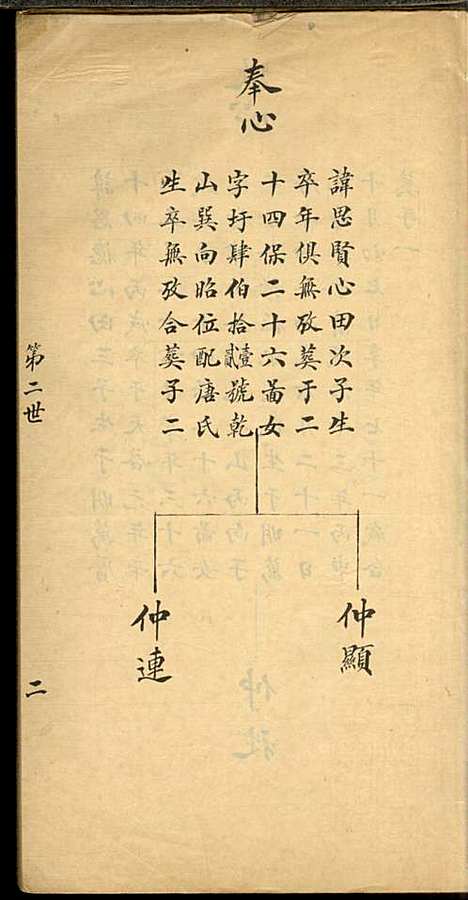 奉心
諱思賢心田次子生
卒年俱無攷葬于二
十四保二十六啚女
字圩肆伯拾貳壹號乾
山巽向昭位配唐氏
生卒無攷合葬子二
仲顯
仲連
第二世
二